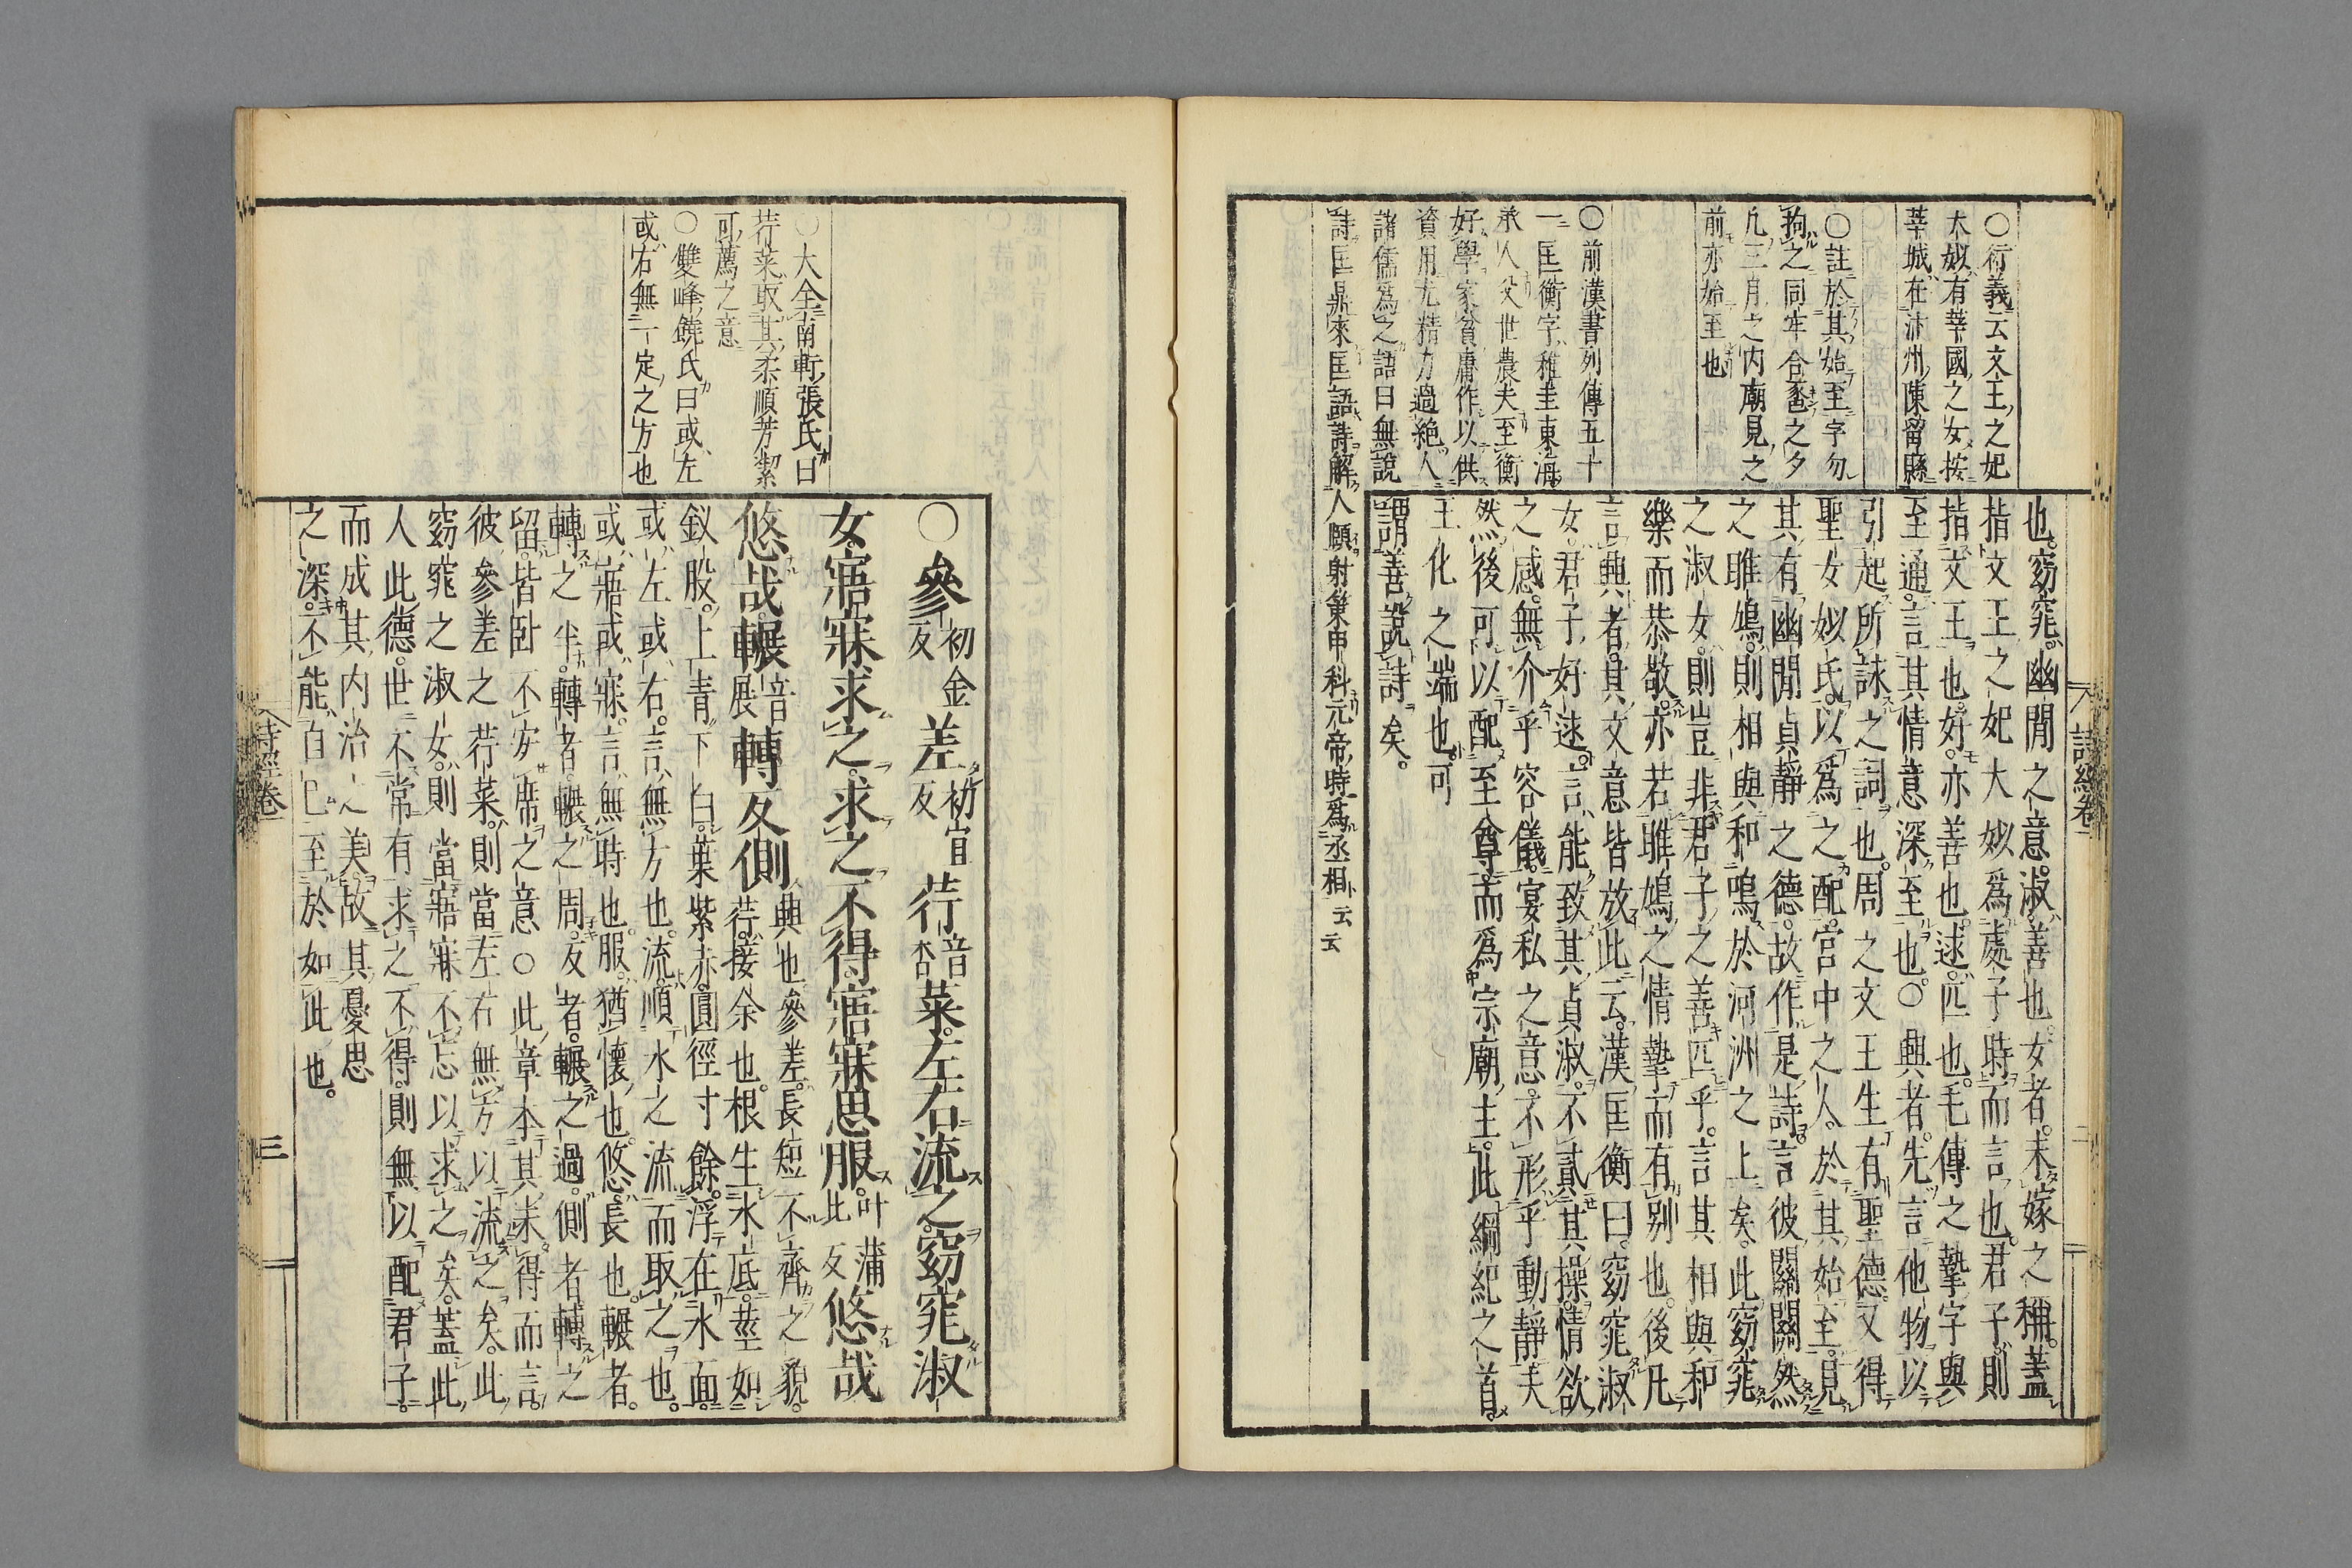 ○衍義云文王之妃
太姒有莘國之女按
莘城在汴州陳留縣
○註於其始至字勿
拘之同牢合巹之夕
凡三月之内廟見之
前亦始至也
○前漢書列傳五十
一匡衡字稚圭東海
承人父世農夫至衡
好學家貧庸作以供
資用尤精力過絶人
諸儒爲之語曰無說
詩匡鼎來匡語詩解人頤射策甲科元帝時爲丞相云云
也窈窕幽閒之意淑善也女者未嫁之稱蓋
指文王之妃大姒爲處子時而言也君子則
指文王也好亦善也逑匹也毛傳之摯字與
至通言其情意深至也○興者先言他物以
引起所詠之詞也周之文王生有聖德又得
聖女姒氏以爲之配宮中之人於其始至見
其有幽閒貞靜之德故作是詩言彼關關然
之雎鳩則相與和鳴於河洲之上矣此窈窕
之淑女則豈非君子之善匹乎言其相與和
樂而恭敬亦若雎鳩之情摯而有別也後凡
言興者其文意皆放此云漢匡衡曰窈窕淑
女君子好逑言能致其貞淑不貳其操情欲
之感無介乎容儀宴私之意不形乎動靜夫
然後可以配至尊而爲宗廟主此綱紀之首
王化之端也可
謂善說詩矣
詩經卷一
二
○大全南軒張氏曰
荇菜取其柔順芳潔
可薦之意
○雙峰饒氏曰或左
或右無一定之方也
○參初金反差初宜反荇音杏菜左右流之窈窕淑
女寤寐求之求之不得寤寐思服叶蒲北反悠哉
悠哉輾音展轉反側興也參差長短不齊之貌
荇接余也根生水底莖如
釵股上青下白葉紫赤圓徑寸餘浮在水面
或左或右言無方也流順水之流而取之也
或寤或寐言無時也服猶懷也悠長也輾者
轉之半轉者輾之周反者輾之過側者轉之
留皆臥不安席之意○此章本其未得而言
彼參差之荇菜則當左右無方以流之矣此
窈窕之淑女則當寤寐不忘以求之矣蓋此
人此德世不常有求之不得則無以配君子
而成其内治之美故其憂思
之深不能自已至於如此也
詩經卷一
三